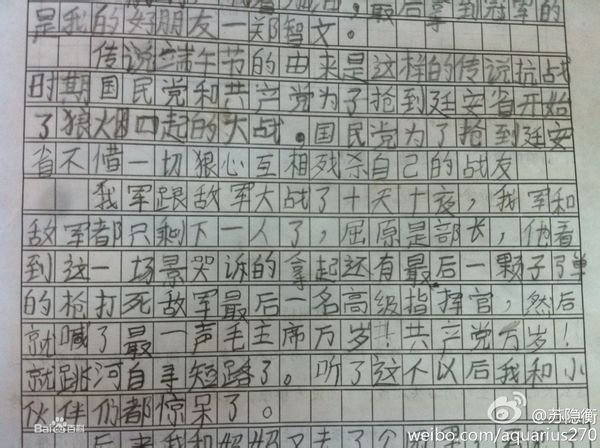 最后拿到冠军的
是我的好朋友一郑智文。
传说端午节的由来是这样的传说抗战
时期国民党和共产党为了抢到廷安省开始
了狼火四起的大战。国民党为了抢到廷安
省不借一切狠心互相残杀自己的战友
我军跟敌军大战了十天十夜，我军和
敌军都只剩下一人了，屈原是部长，他看
到这一场景哭诉的拿起还有最后一颗子弹
的枪打死敌军最后一名高级指挥官，然后
就喊了最一声毛主席万岁！共产党万岁！
就跳河自寻短路了。听了这个以后我和小
伙伴们都惊呆了。
后来我和妈妈又去了个
Baidu百科
@苏隐衡
weibo.com/aquarius270